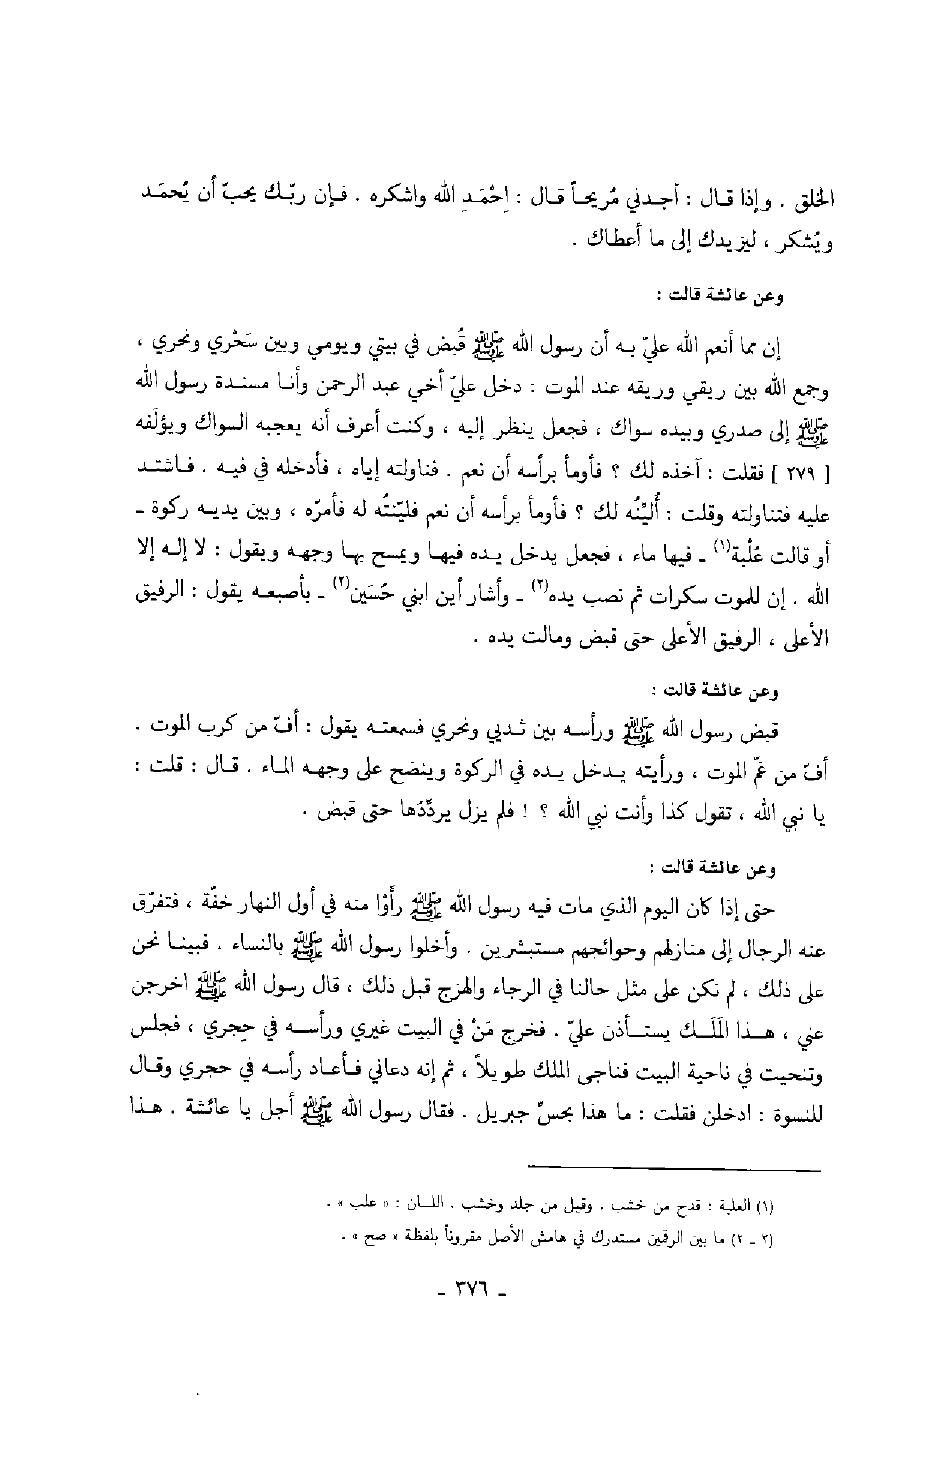 الخلق . وإذا قال : أجدني مُريحاً قال : اِحْمَدِ الله واشكره . فإن ربّك يحبّ أن يُحمَد
ويُشكر ، ليزيدك إلى ما أعطاك .
وعن عائشة قالت :
إن مما أنعم الله عليّ به أن رسول الله ﷺ قُبض في بيتي ويومي وبين سَحْري ونحري ،
وجمع الله بين ريقي وريقه عند الموت : دخل عليّ أخي عبد الرحمن وأنا مسندة رسول الله
ﷺ إلى صدري وبيده سواك ، فجعل ينظر إليه ، وكنت أعرف أنه يعجبه السواك ويؤلفه
[ ٢٧٩ ] فقلت : آخذه لك ؟ فأومأ برأسه أن نعم . فناولته إياه ، فأدخله في فيه . فاشتد
عليه فتناولته وقلت : أُليّنُه لك ؟ فأومأ برأسه أن نعم فليّنتُه له فأمرّه ، وبين يديه ركوة ـ
أو قالت عُلْبة(١) ـ فيها ماء ، فجعل يدخل يده فيها ويمسح بها وجهه ويقول : لا إله إلا
الله . إن للموت سكرات ثم نصب يده(٢) ـ وأشار أبن ابني حُسَين(٢) ـ بأصبعه يقول : الرفيق
الأعلى ، الرفيق الأعلى حتى قبض ومالت يده .
وعن عائشة قالت :
قبض رسول الله ﷺ ورأسه بين ثديي ونحري فسمعته يقول : أفّ من كرب الموت .
أفّ من غمّ الموت ، ورأيته يدخل يده في الركوة وينضح على وجهه الماء . قال : قلت :
يا نبي الله ، تقول كذا وأنت نبي الله ؟ ! فلم يزل يردّدُها حتى قبض .
وعن عائشة قالت :
حتى إذا كان اليوم الذي مات فيه رسول الله ﷺ رأَوْا منه في أول النهار خفّة ، فتفرّق
عنه الرجال إلى منازلهم وحوائجهم مستبشرين . وأخلوا رسول الله ﷺ بالنساء . فبينا نحن
على ذلك ، لم نكن على مثل حالنا في الرجاء والهزج قبل ذلك ، قال رسول الله ﷺ اخرجن
عني ، هذا المَلَك يستأذن عليّ . فخرج مَنْ في البيت غيري ورأسه في حِجري ، فجلس
وتنحيت في ناحية البيت فناجى الملك طويلاً ، ثم إنه دعاني فأعاد رأسه في حجري وقال
للنسوة : ادخلن فقلت : ما هذا بحسّ جبريل . فقال رسول الله ﷺ أجل يا عائشة . هذا
(١) العلبة : قدح من خشب . وقيل من جلد وخشب . اللسان : « علب » .
(٢ ـ ٢) ما بين الرقمين مستدرك في هامش الأصل مقروناً بلفظة « صح » .
ـ ٣٧٦ ـ